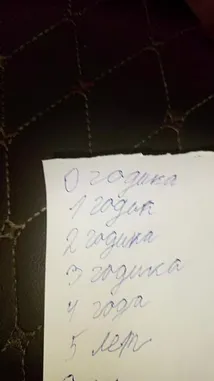 0 годика
1 годик
2 годика
3 годика
4 года
5 лет